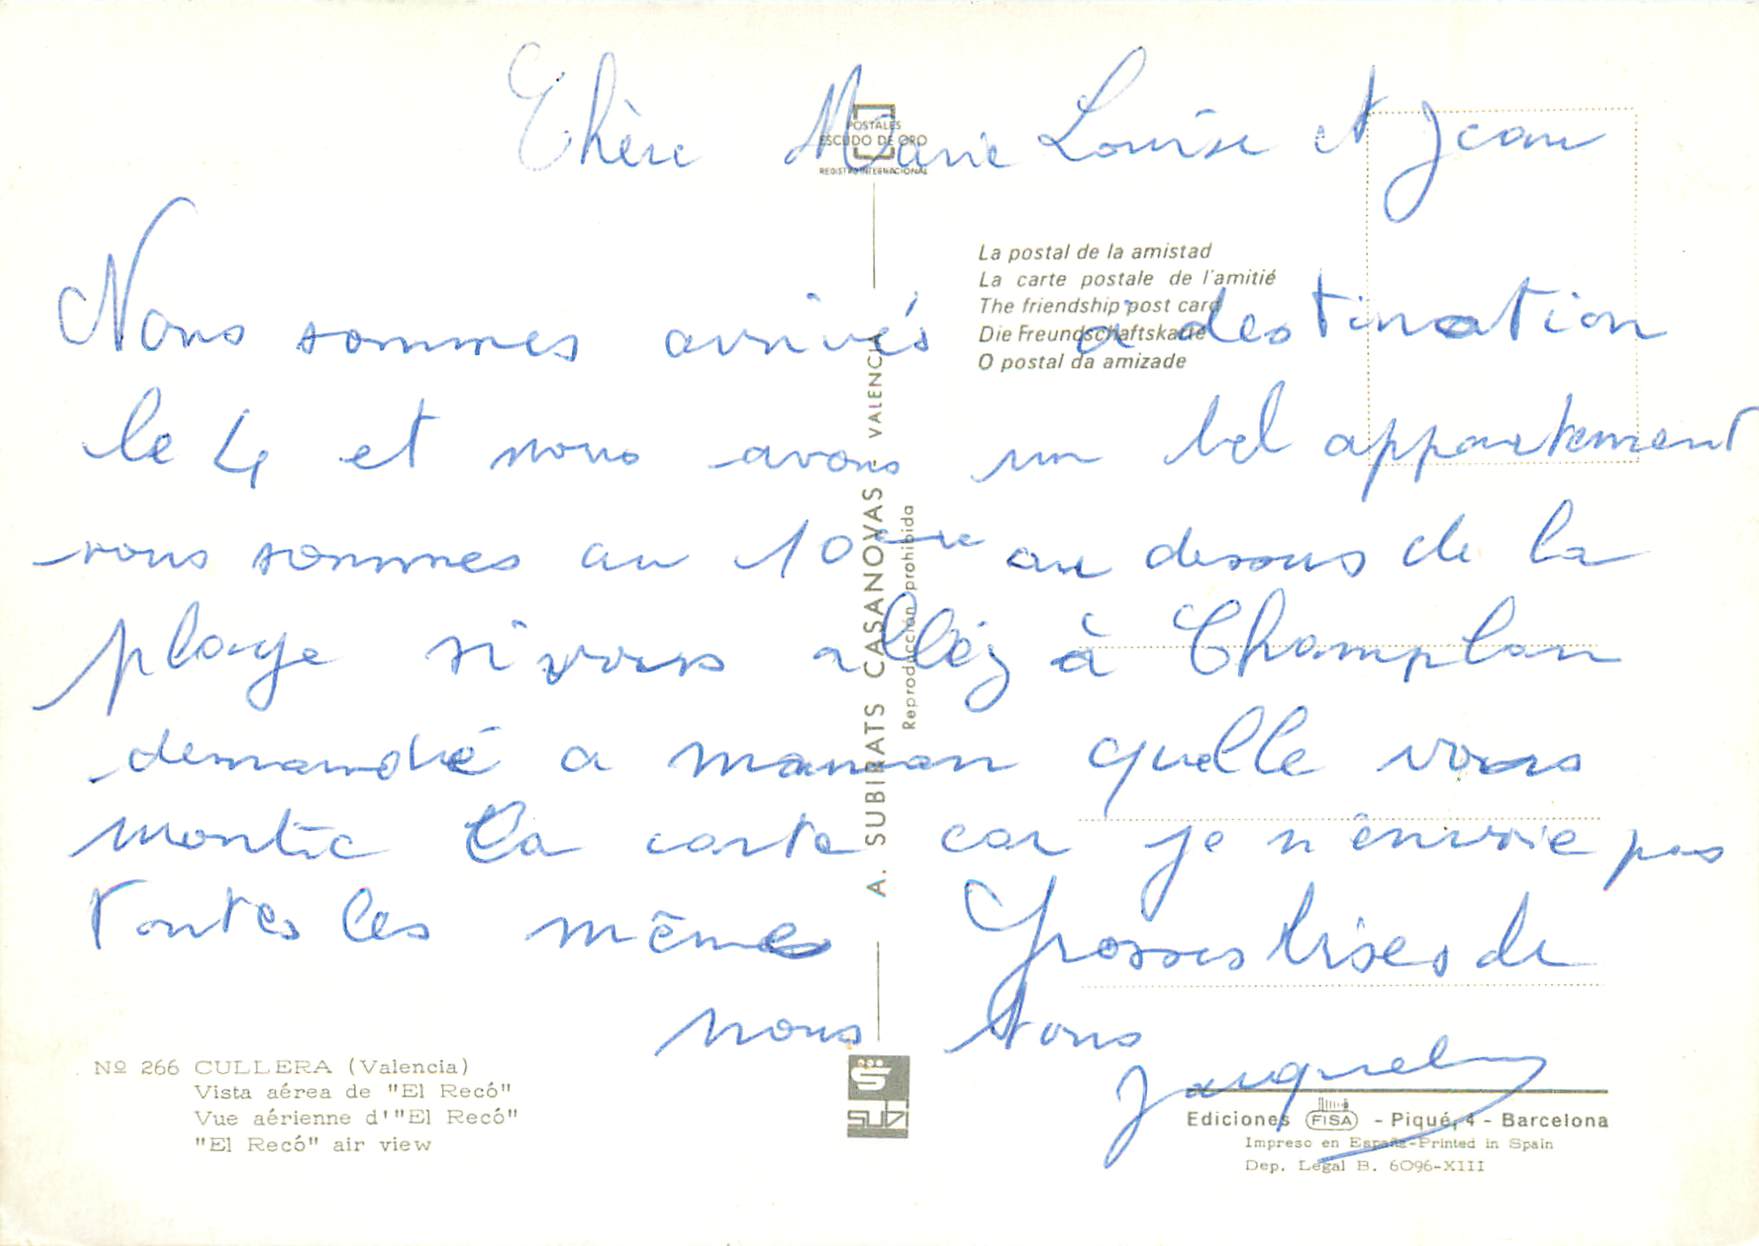 Chère Marie Louise et Jean
Nous sommes arrivés a destination
le 4 et nous avons un bel appartement
nous sommes au 10eme au dessus de la
plage si vous alléz à Champlan
demandé a maman quelle vous
montre la carte car je n'envoie pas
toutes les mêmes Grosses bises de
nous tous
Jacqueline
POSTALES
ESCUDO DE ORO
REGISTRO INTERNACIONAL
La postal de la amistad
La carte postale de l'amitié
The friendship post card
Die Freundschaftskarte
O postal da amizade
A. SUBIRATS CASANOVAS - VALENCIA
Reproducción prohibida
Nº 266 CULLERA (Valencia)
Vista aérea de "El Recó"
Vue aérienne d'"El Recó"
"El Recó" air view
SUBI
Ediciones FISA - Piqué, 4 - Barcelona
Impreso en España-Printed in Spain
Dep. Legal B. 6096-XIII